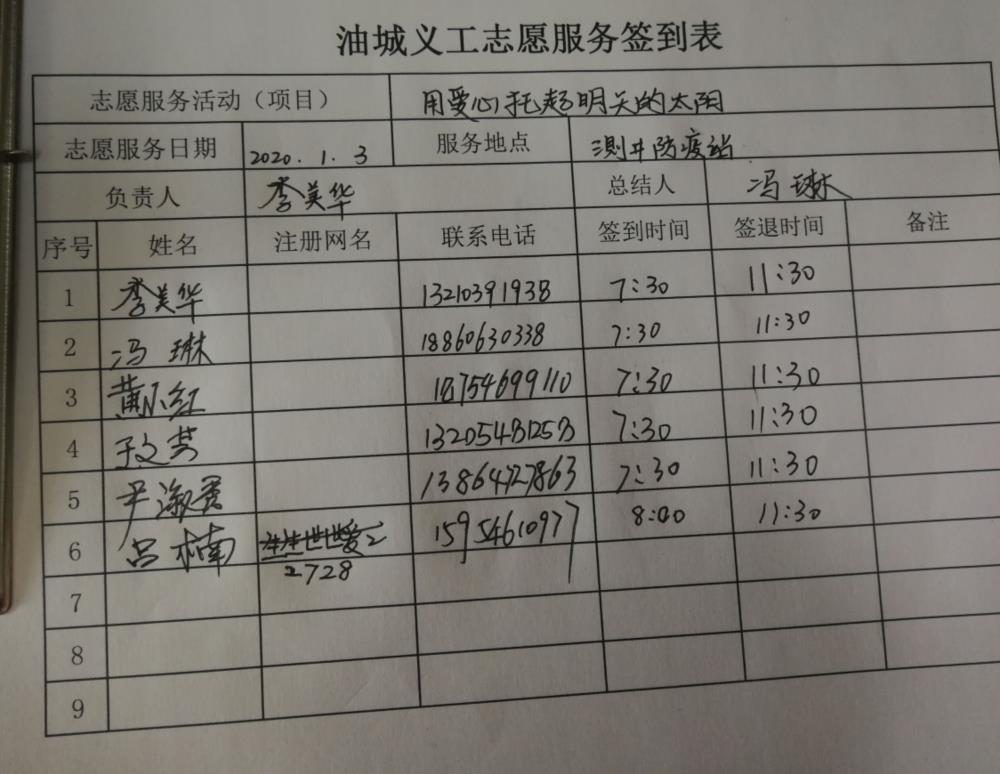 油城义工志愿服务签到表
志愿服务活动（项目） 用爱心托起明天的太阳
志愿服务日期 2020.1.3 服务地点 测井防疫站
负责人 李美华 总结人 冯琳
序号 姓名 注册网名 联系电话 签到时间 签退时间 备注
1 李美华 13210391938 7:30 11:30
2 冯琳 18860630338 7:30 11:30
3 黄小红 18754699110 7:30 11:30
4 于文芳 13205481258 7:30 11:30
5 尹淑贵 13864727863 7:30 11:30
6 吕楠 生生世世爱2 15954610977 8:00 11:30
2728
7
8
9